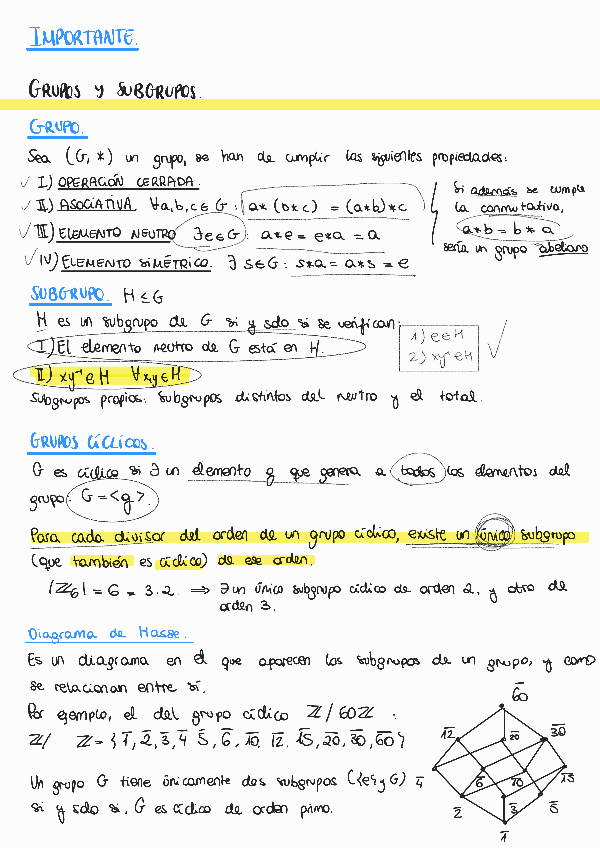 IMPORTANTE.
GRUPOS Y SUBGRUPOS.
GRUPO.
Sea (G, *) un grupo, se han de cumplir las siguientes propiedades:
✓ I) OPERACIÓN CERRADA.
✓ II) ASOCIATIVA. ∀a,b,c ∈ G : a*(b*c) = (a*b)*c
✓ III) ELEMENTO NEUTRO ∃e∈G : a*e = e*a = a
✓ IV) ELEMENTO SIMÉTRICO. ∃ s∈G : s*a = a*s = e
Si además se cumple
la conmutativa,
a*b = b*a
sería un grupo abeliano
SUBGRUPO. H ≤ G
H es un subgrupo de G si y sólo si se verifican:
I) El elemento neutro de G está en H.
II) xy⁻¹ ∈ H ∀x,y ∈ H
1) e∈H
2) xy⁻¹∈H ✓
Subgrupos propios: subgrupos distintos del neutro y el total.
GRUPOS CÍCLICOS.
G es cíclico si ∃ un elemento g que genera a todos los elementos del
grupo: G = <g>.
Para cada divisor del orden de un grupo cíclico, existe un único subgrupo
(que también es cíclico) de ese orden.
|ℤ₆| = 6 = 3·2. ⟹ ∃ un único subgrupo cíclico de orden 2, y otro de
orden 3.
Diagrama de Hasse.
Es un diagrama en el que aparecen los subgrupos de un grupo, y como
se relacionan entre sí.
Por ejemplo, el del grupo cíclico ℤ/60ℤ :
ℤ/ ℤ = {1̄, 2̄, 3̄, 4̄ 5̄, 6̄, 1̄0̄, 1̄2̄, 1̄5̄, 2̄0̄, 3̄0̄, 6̄0̄}
Un grupo G tiene únicamente dos subgrupos ({e} y G)
si y sólo si, G es cíclico de orden primo.
6̄0̄
1̄2̄ 2̄0̄ 3̄0̄
4̄ 6̄ 1̄0̄ 1̄5̄
2̄ 3̄ 5̄
1̄